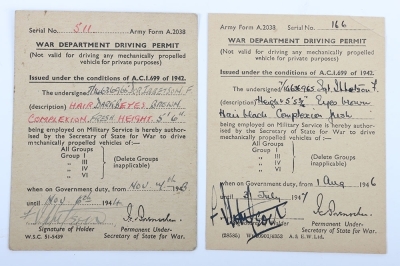 Serial No. 511 Army Form A.2038
WAR DEPARTMENT DRIVING PERMIT
(Not valid for driving any mechanically propelled
vehicle for private purposes)
Issued under the conditions of A.C.I.699 of 1942.
The undersigned F
(description) HAIR DARK EYES BROWN
COMPLEXION FRESH HEIGHT. 5' 6"
being employed on Military Service is hereby author-
ised by the Secretary of State for War to drive
mechanically propelled vehicles of:—
All Groups
Group I
" II
" IV
" V
" VI
(Delete Groups
inapplicable)
when on Government duty, from Nov 7th 1943
until Nov 6th 1944
Signature of Holder
W.S.C. 51-5459
Permanent Under-
Secretary of State for War.
Army Form A.2038. Serial No. 166
WAR DEPARTMENT DRIVING PERMIT
(Not valid for driving any mechanically propelled
vehicle for private purposes)
Issued under the conditions of A.C.I.699 of 1942.
The undersigned Sgt F.
(description) Height 5' 5½" Eyes Brown
Hair black Complexion fresh
being employed on Military Service is hereby author-
ised by the Secretary of State for War to drive
mechanically propelled vehicles of:—
All Groups
Group I
" II
" III
" IV
" V
" VI
(Delete Groups
inapplicable)
when on Government duty, from 1 Aug 1946
until 31 July 1947
Signature of Holder
Permanent Under-
Secretary of State for War.
A. & E.W. Ltd.